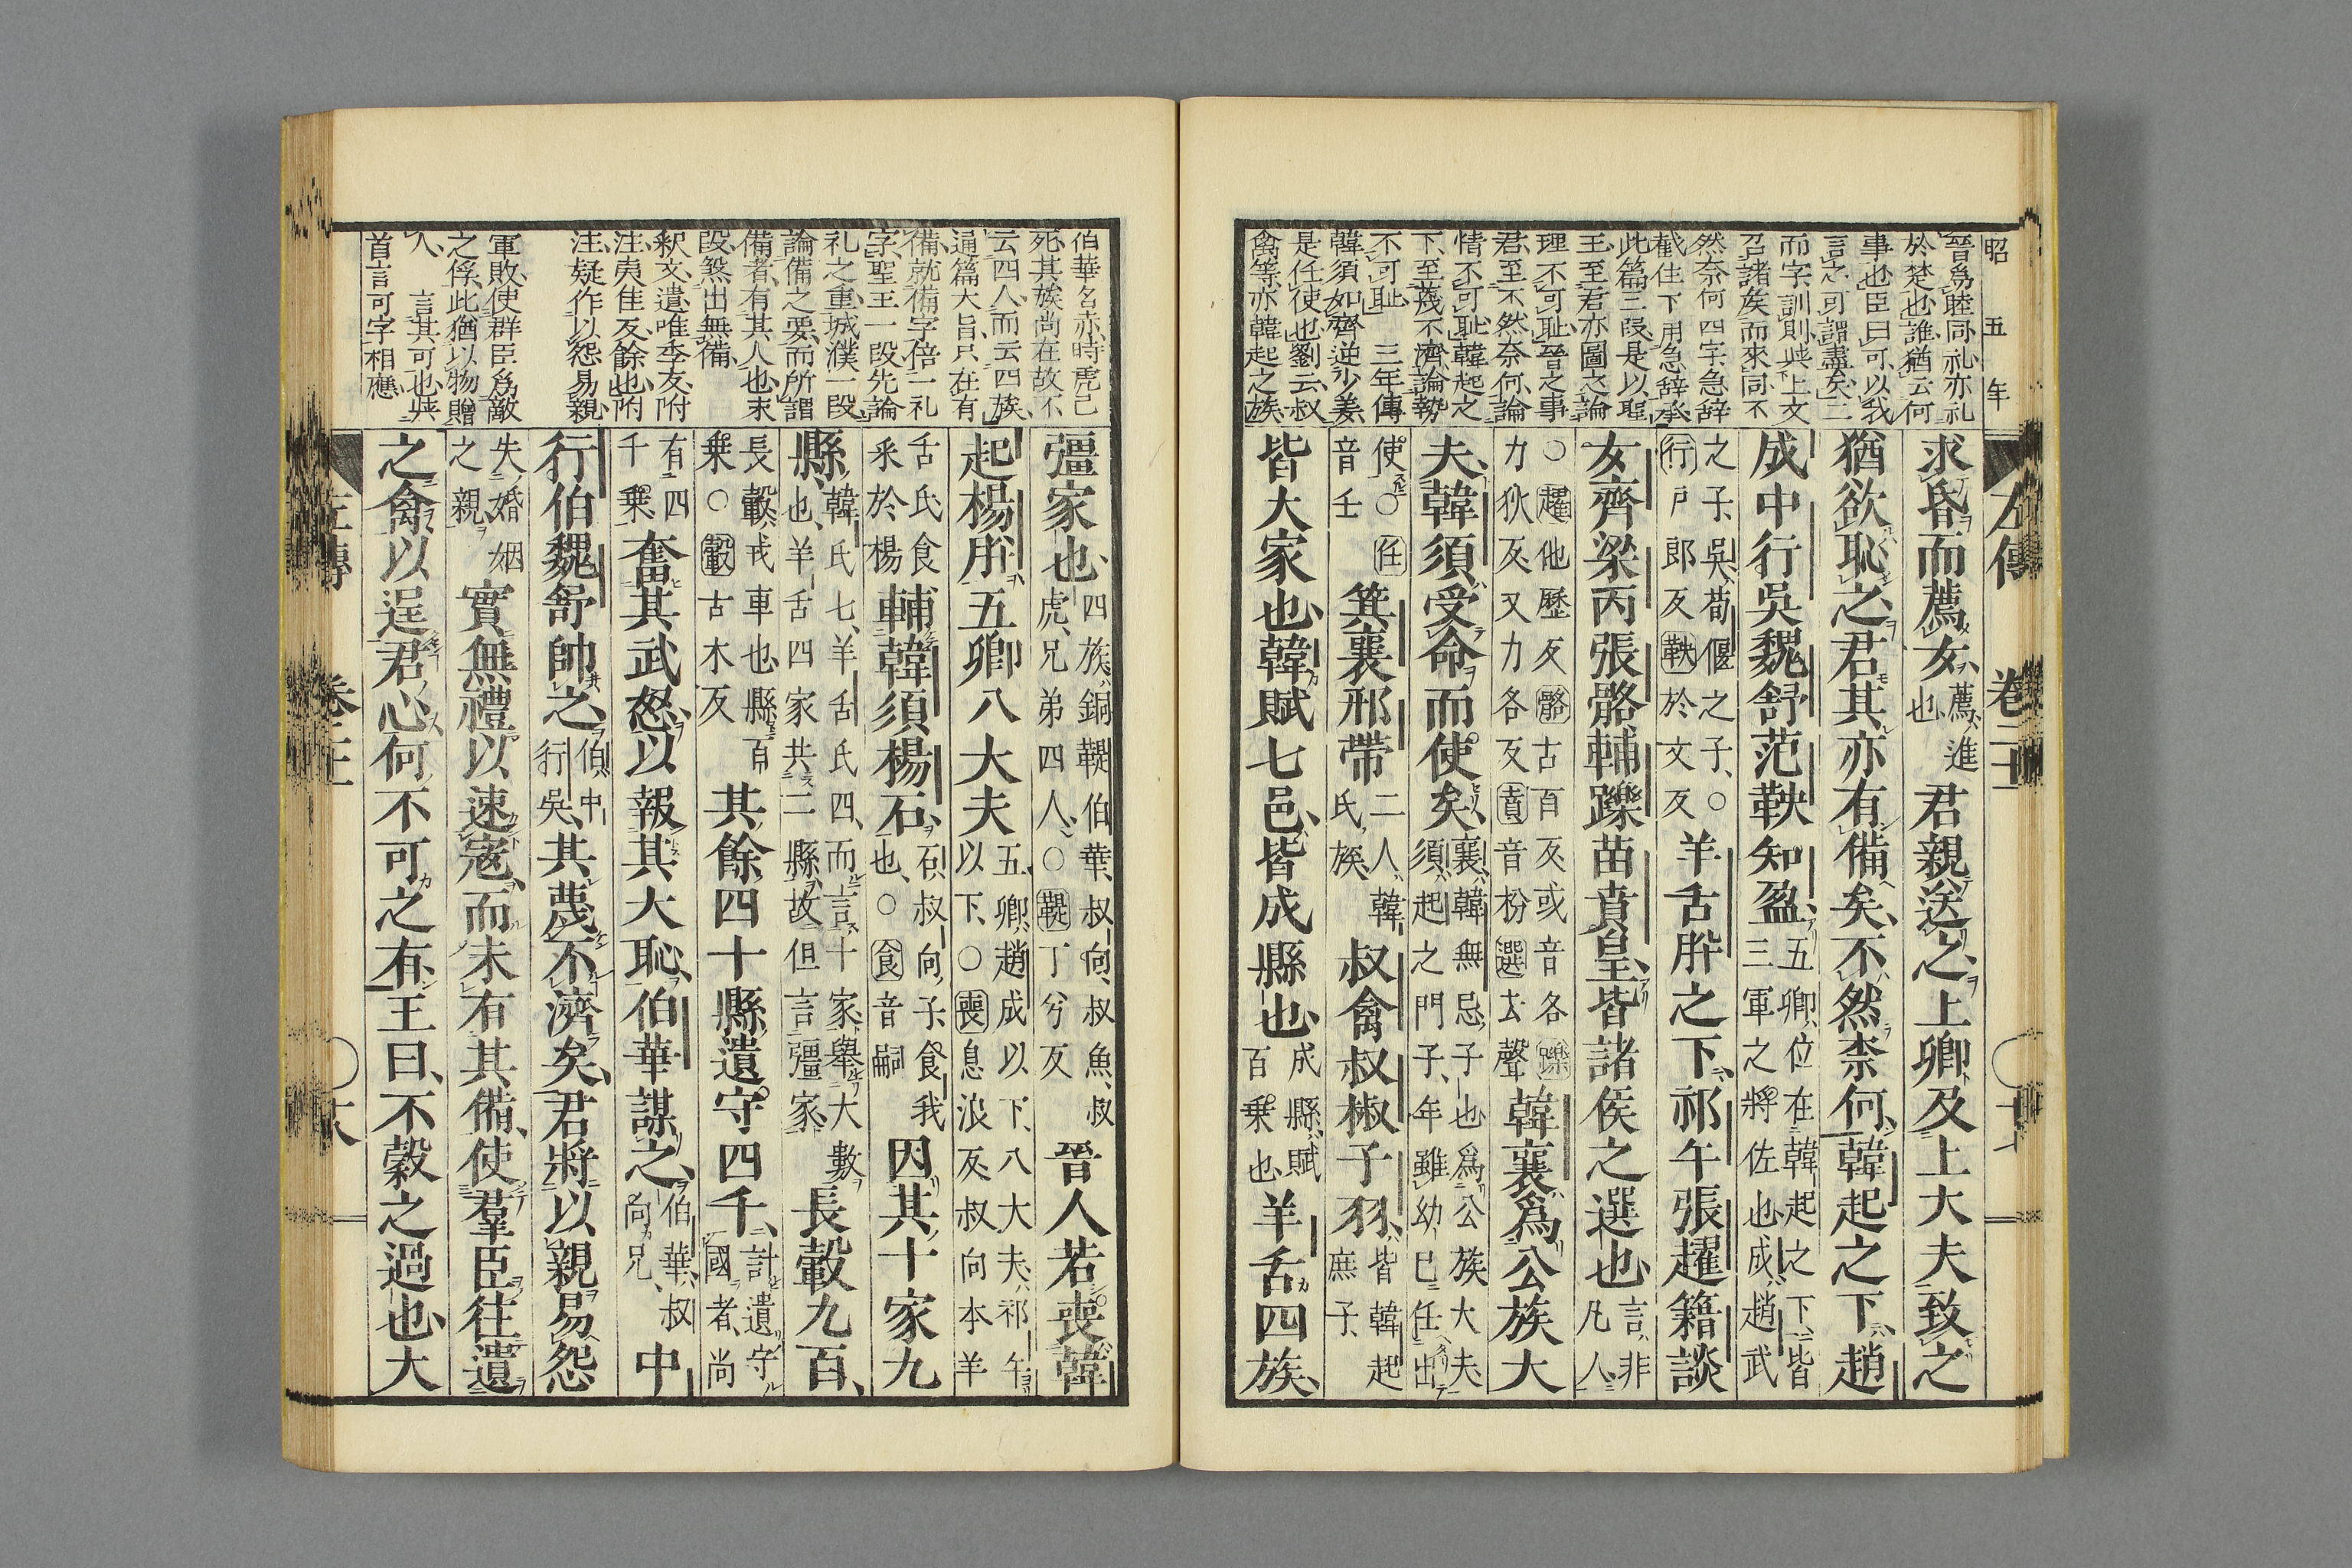 昭五年
晉爲睦同礼亦礼
於楚也誰猶云何
事也臣曰可以我
言之可謂盡矣三
而字訓則與上文
召諸矦而來同不
然奈何四字急辞
截住下用急辞承
此篇三段是以聖
王至君亦圖之論
理不可耻晉之事
君至不然奈何論
情不可耻韓起之
下至蔑不濟論勢
不可耻 三年傳
韓須如齊逆少姜
是任使也劉云叔
禽等亦韓起之族
左傳 卷二十一 〇十八
求昏而薦女薦進也君親送之上卿及上大夫致之
猶欲恥之君其亦有備矣不然柰何韓起之下趙
成中行吳魏舒范鞅知盈五卿位在韓起之下皆三軍之將佐也成趙武
之子吳荀偃之子〇行戸郎反鞅於丈反羊舌肸之下祁午張趯籍談
女齊梁丙張骼輔躒苗賁皇皆諸侯之選也言非凡人
〇趯他歷反骼古百反或音各躒力狄反又力各反賁音枌選去聲韓襄爲公族大
夫韓須受命而使矣襄韓無忌子也爲公族大夫須起之門子年雖幼已任出
使〇任音壬箕襄邢帶二人韓氏族叔禽叔椒子羽皆韓起庶子
皆大家也韓賦七邑皆成縣也成縣賦百乘也羊舌四族
伯華名赤時虎已
死其族尚在故不
云四人而云四族
通篇大旨只在有
備就備字倍一礼
字聖王一段先論
礼之重城濮一段
論備之要而所謂
備者有其人也末
段煞出無備
釈文遺唯季友附
注夷隹反餘也附
注疑作以怨易親
軍敗使群臣爲敵
之俘此猶以物贈
人 言其可也與
首言可字相應
彊家也四族銅鞮伯華叔向叔魚叔虎兄弟四人〇鞮丁兮反晉人若喪韓
起楊肸五卿八大夫五卿趙成以下八大夫祁午以下〇喪息浪反叔向本羊
舌氏食采於楊輔韓須楊石石叔向子食我也〇食音嗣因其十家九
縣韓氏七羊舌氏四而言十家舉大數也羊舌四家共二縣故但言彊家長轂九百
長轂戎車也縣百乘〇轂古木反其餘四十縣遺守四千計遺守國者尚
有四千乘奮其武怒以報其大恥伯華謀之伯華叔向兄中
行伯魏舒帥之伯中行吳其蔑不濟矣君將以親易怨
失婚姻之親實無禮以速寇而未有其備使羣臣往遺
之禽以逞君心何不可之有王曰不穀之過也大